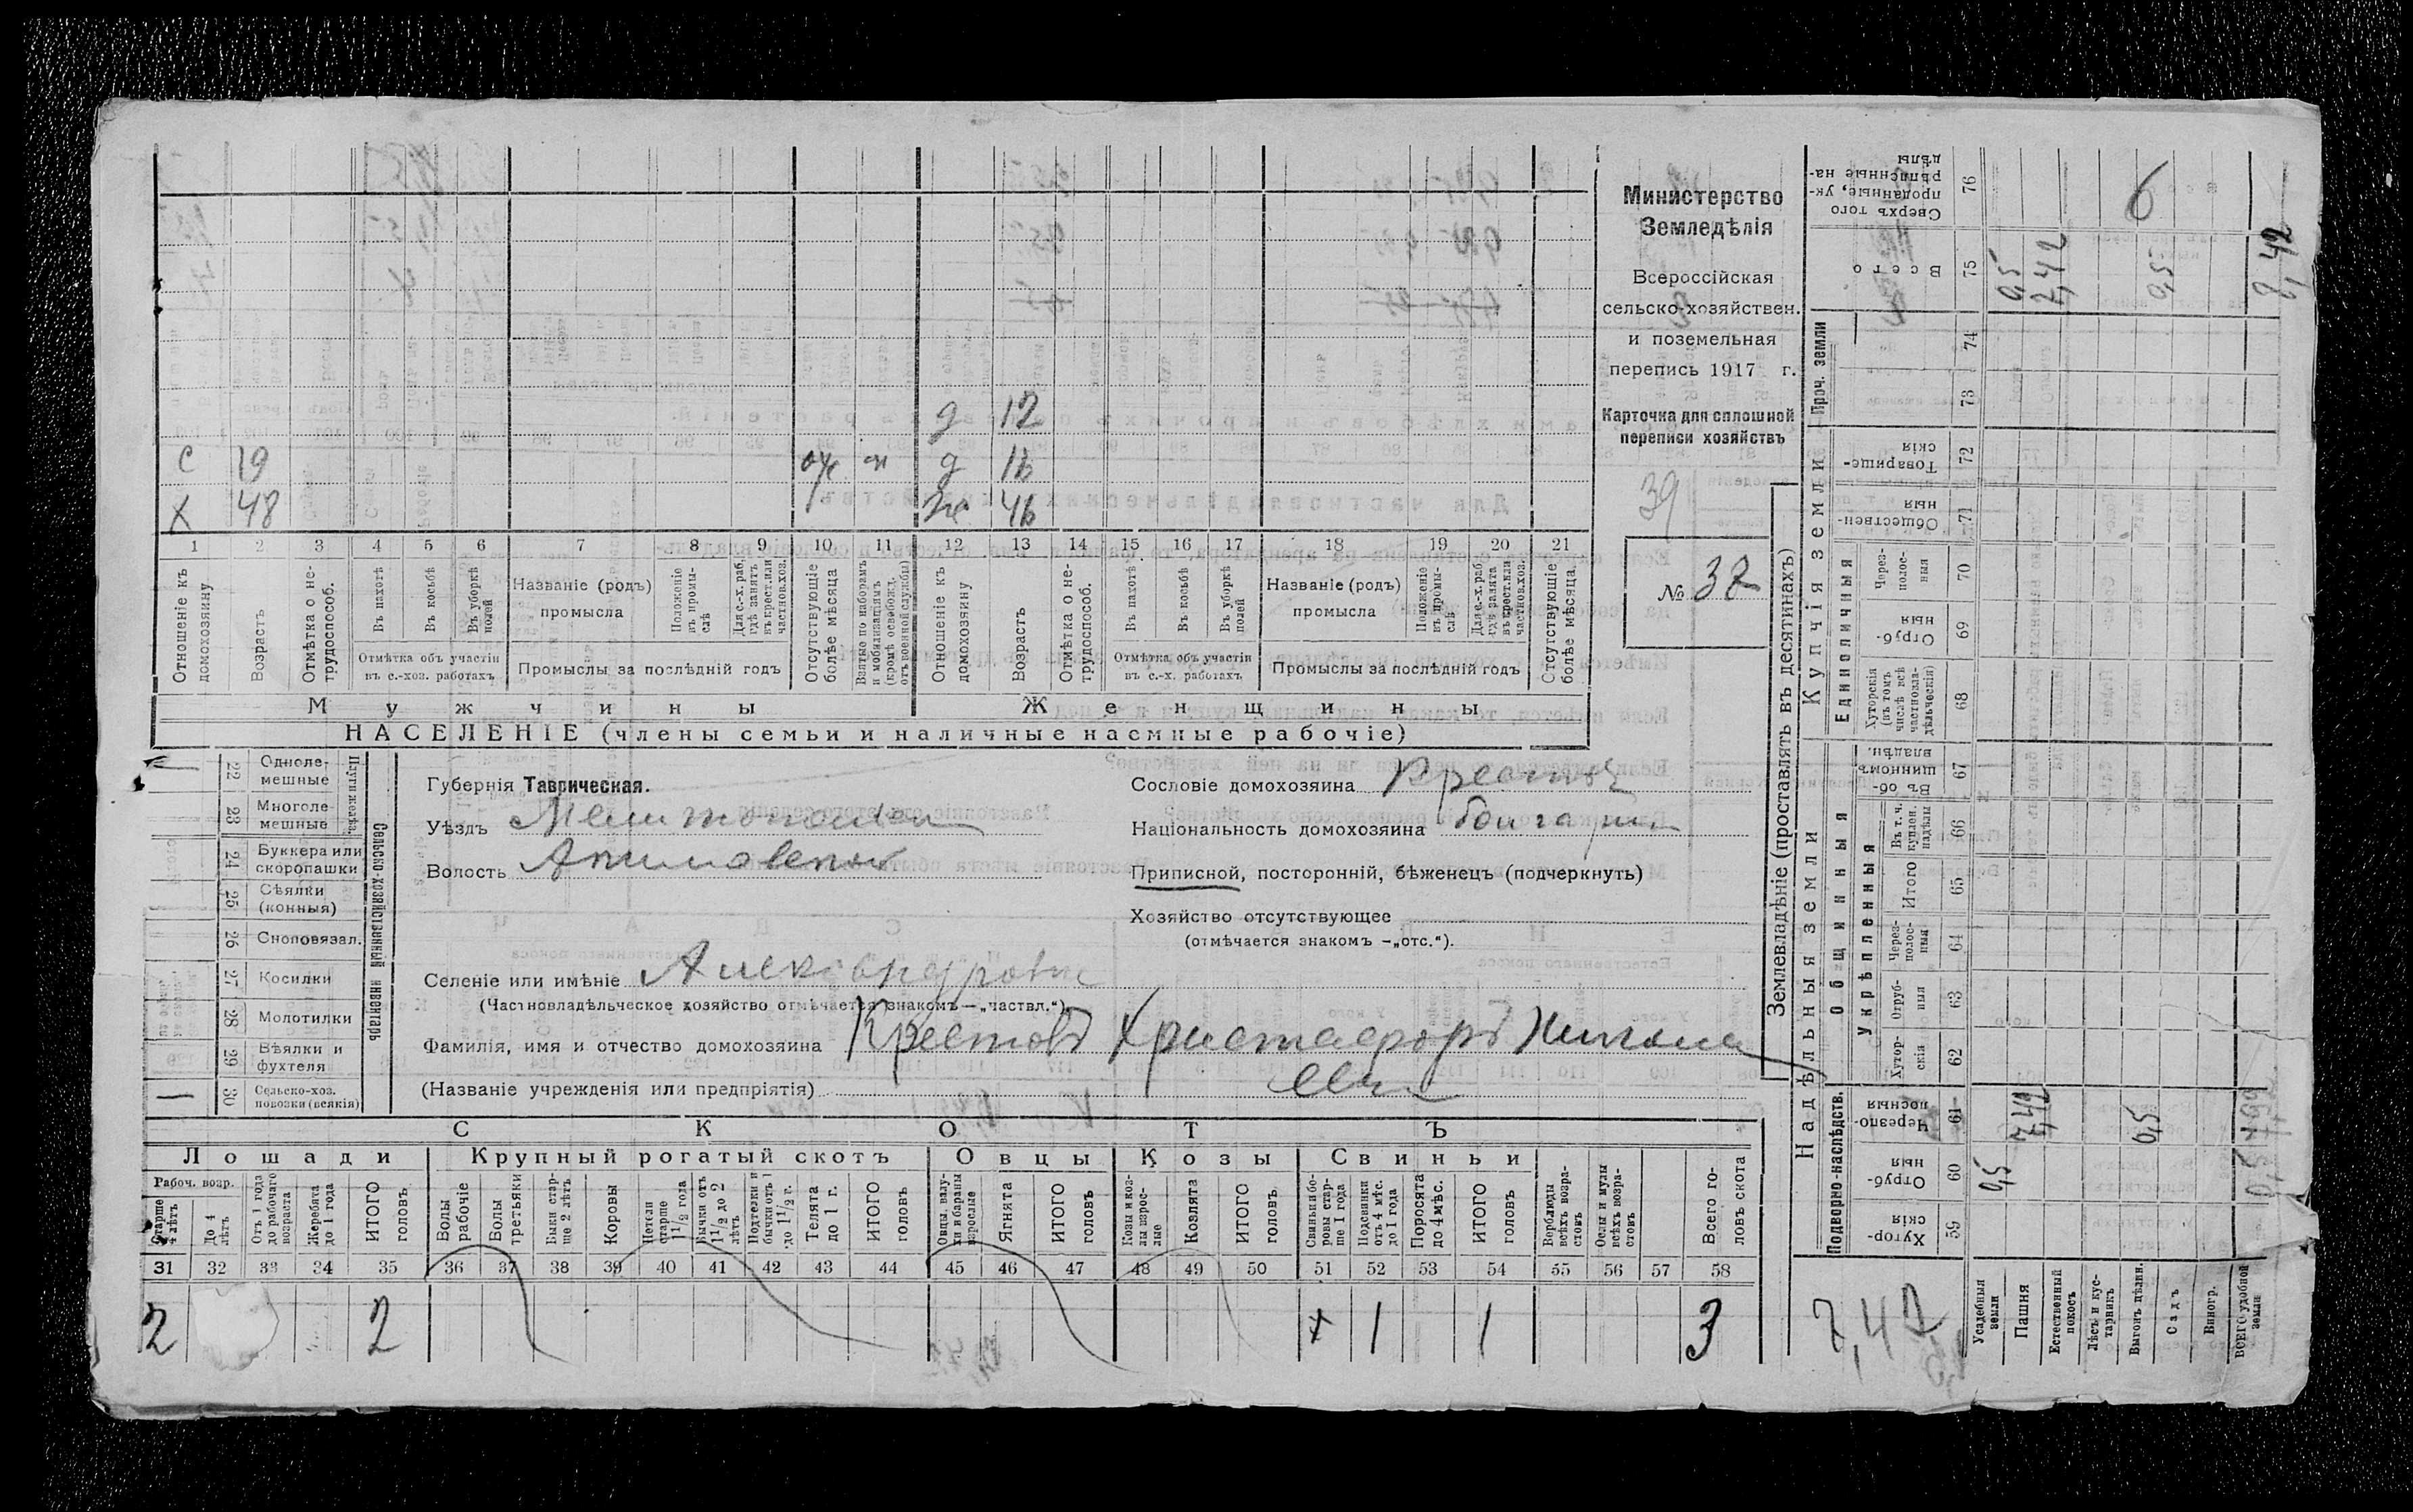 д 12
с 19 д 16
х 48 ж 46
1 2 3 4 5 6 7 8 9 10 11 12 13 14 15 16 17 18 19 20 21
Отношеніе къ домохозяину
Возрастъ
Отмѣтка о не-
трудоспособ.
Въ пахотѣ
Въ косьбѣ
Въ уборкѣ
полей
Отмѣтка объ участіи
въ с.-хоз. работахъ
Названіе (родъ)
промысла
Положеніе
въ промы-
слѣ
Для с.-х. раб.
гдѣ занятъ
въ крест. или
частнов. хоз.
Промыслы за послѣдній годъ
Отсутствующіе
болѣе мѣсяца
Взятые по наборамъ
и мобилизаціямъ
(кромѣ освобожд.
отъ военной службы)
Отношеніе къ
домохозяину
Возрастъ
Отмѣтка о не-
трудоспособ.
Въ пахотѣ
Въ косьбѣ
Въ уборкѣ
полей
Отмѣтка объ участіи
въ с.-х. работахъ
Названіе (родъ)
промысла
Положеніе
въ промы-
слѣ
Для с.-х. раб.
гдѣ занята
въ крест. или
частнов. хоз.
Промыслы за послѣдній годъ
Отсутствующіе
болѣе мѣсяца
Мужчины Женщины
НАСЕЛЕНІЕ (члены семьи и наличные наемные рабочіе)
Министерство
Земледѣлія
Всероссійская
сельско-хозяйствен.
и поземельная
перепись 1917 г.
Карточка для сплошной
переписи хозяйствъ
39
№ 37
22 Одноле-
мешные
23 Многоле-
мешные
Плуги желѣз.
24 Буккера или
скоропашки
25 Сѣялки
(конныя)
26 Сноповязал.
27 Косилки
28 Молотилки
29 Вѣялки и
фухтеля
30 Сельско-хоз.
повозки (всякія)
Сельско-хозяйственный инвентарь
Губернія Таврическая.
Уѣздъ
Волость
Сословіе домохозяина
Національность домохозяина
Приписной, посторонній, бѣженецъ (подчеркнуть)
Хозяйство отсутствующее
(отмѣчается знакомъ —„отс.“).
Селеніе или имѣніе
(Частновладѣльческое хозяйство отмѣчается знакомъ —„частвл.“)
Фамилія, имя и отчество домохозяина Крестовъ
(Названіе учрежденія или предпріятія)
СКОТЪ
Лошади Крупный рогатый скотъ Овцы Козы Свиньи
Рабоч. возр.
Старше
4 лѣтъ
До 4
лѣтъ
Отъ 1 года
до рабочаго
возраста
Жеребята
до 1 года
ИТОГО
головъ
Волы
рабочіе
Волы
третьяки
Быки стар-
ше 2 лѣтъ
Коровы
Нетели
старше
1 1/2 года
Бычки отъ
1 1/2 до 2
лѣтъ
Подтелки и
бычки отъ 1
до 1 1/2 г.
Телята
до 1 г.
ИТОГО
головъ
Овцы, валу-
хи и бараны
взрослые
Ягнята
ИТОГО
головъ
Козы и коз-
лы взрос-
лые
Козлята
ИТОГО
головъ
Свиньи и бо-
ровы стар-
ше 1 года
Подсвинки
отъ 4 мѣс.
до 1 года
Поросята
до 4 мѣс.
ИТОГО
головъ
Верблюды
всѣхъ возра-
стовъ
Ослы и мулы
всѣхъ возра-
стовъ
Всего го-
ловъ скота
31 32 33 34 35 36 37 38 39 40 41 42 43 44 45 46 47 48 49 50 51 52 53 54 55 56 57 58
2 2 + 1 1 3
Землевладѣніе (проставлять въ десятинахъ)
Надѣльныя земли Купчія земли Проч. земли
Подворно-наслѣдств. Общинныя Единоличныя
Укрѣпленныя
Хутор-
скія
59
Отруб-
ныя
60
Черезпо-
лосныя
61
Хутор-
скія
62
Отруб-
ныя
63
Через-
полос-
ныя
64
Итого
65
Въ т. ч.
куплен.
надѣлы
66
Въ об-
щинномъ
владѣн.
67
Хуторскія
(въ томъ
числѣ всѣ
частновла-
дѣльческія)
68
Отруб-
ныя
69
Через-
полос-
ныя
70
Обществен-
ныя
71
Товарище-
скія
72
73
74
Всего
75
Сверхъ того
проданные, ук-
рѣпленные на-
дѣлы
76
Усадебныя
земли
0,5 0,5
Пашня
7,42 7,42
Естественный
покосъ
Лѣсъ и кус-
тарникъ
Выгонъ цѣлин.
0,5 0,5
Садъ
Виногр.
ВСЕГО удобной
земли
6